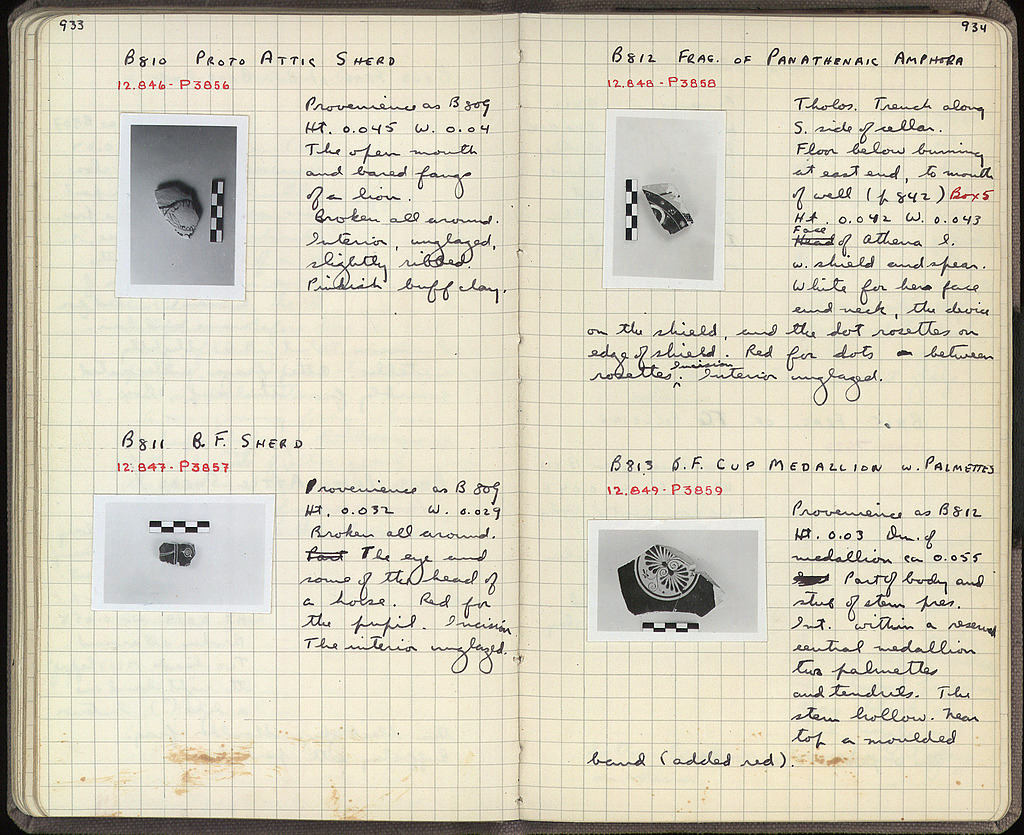 933
B810 PROTO ATTIC SHERD
12.846-P3856
Provenience as B 809
Ht. 0.045 W. 0.04
The open mouth
and bared fangs
of a lion.
Broken all around.
Interior, unglazed,
slightly ribbed.
Pinkish buff clay.
B811 B.F. SHERD
12.847-P3857
Provenience as B 809
Ht. 0.032 W. 0.029
Broken all around.
Part The eye and
some of the head of
a horse. Red for
the pupil. Incision
The interior unglazed.
934
B812 FRAG. OF PANATHENAIC AMPHORA
12.848-P3858
Tholos. Trench along
S. side of cellar.
Floor below burning
at east end, to mouth
of well (p 842) Box 5
Ht. 0.042 W. 0.043
Face
Head of Athena l.
w. shield and spear.
White for her face
and neck, the device
on the shield, and the dot rosettes on
edge of shield. Red for dots between
rosettes. Incision Interior unglazed.
B813 B.F. CUP MEDALLION W. PALMETTES
12.849-P3859
Provenience as B812
Ht. 0.03 Dm. of
medallion ca 0.055
Part of body and
stub of stem pres.
Int. within a reserved
central medallion
two palmettes
and tendrils. The
stem hollow. Near
top a moulded
band (added red).